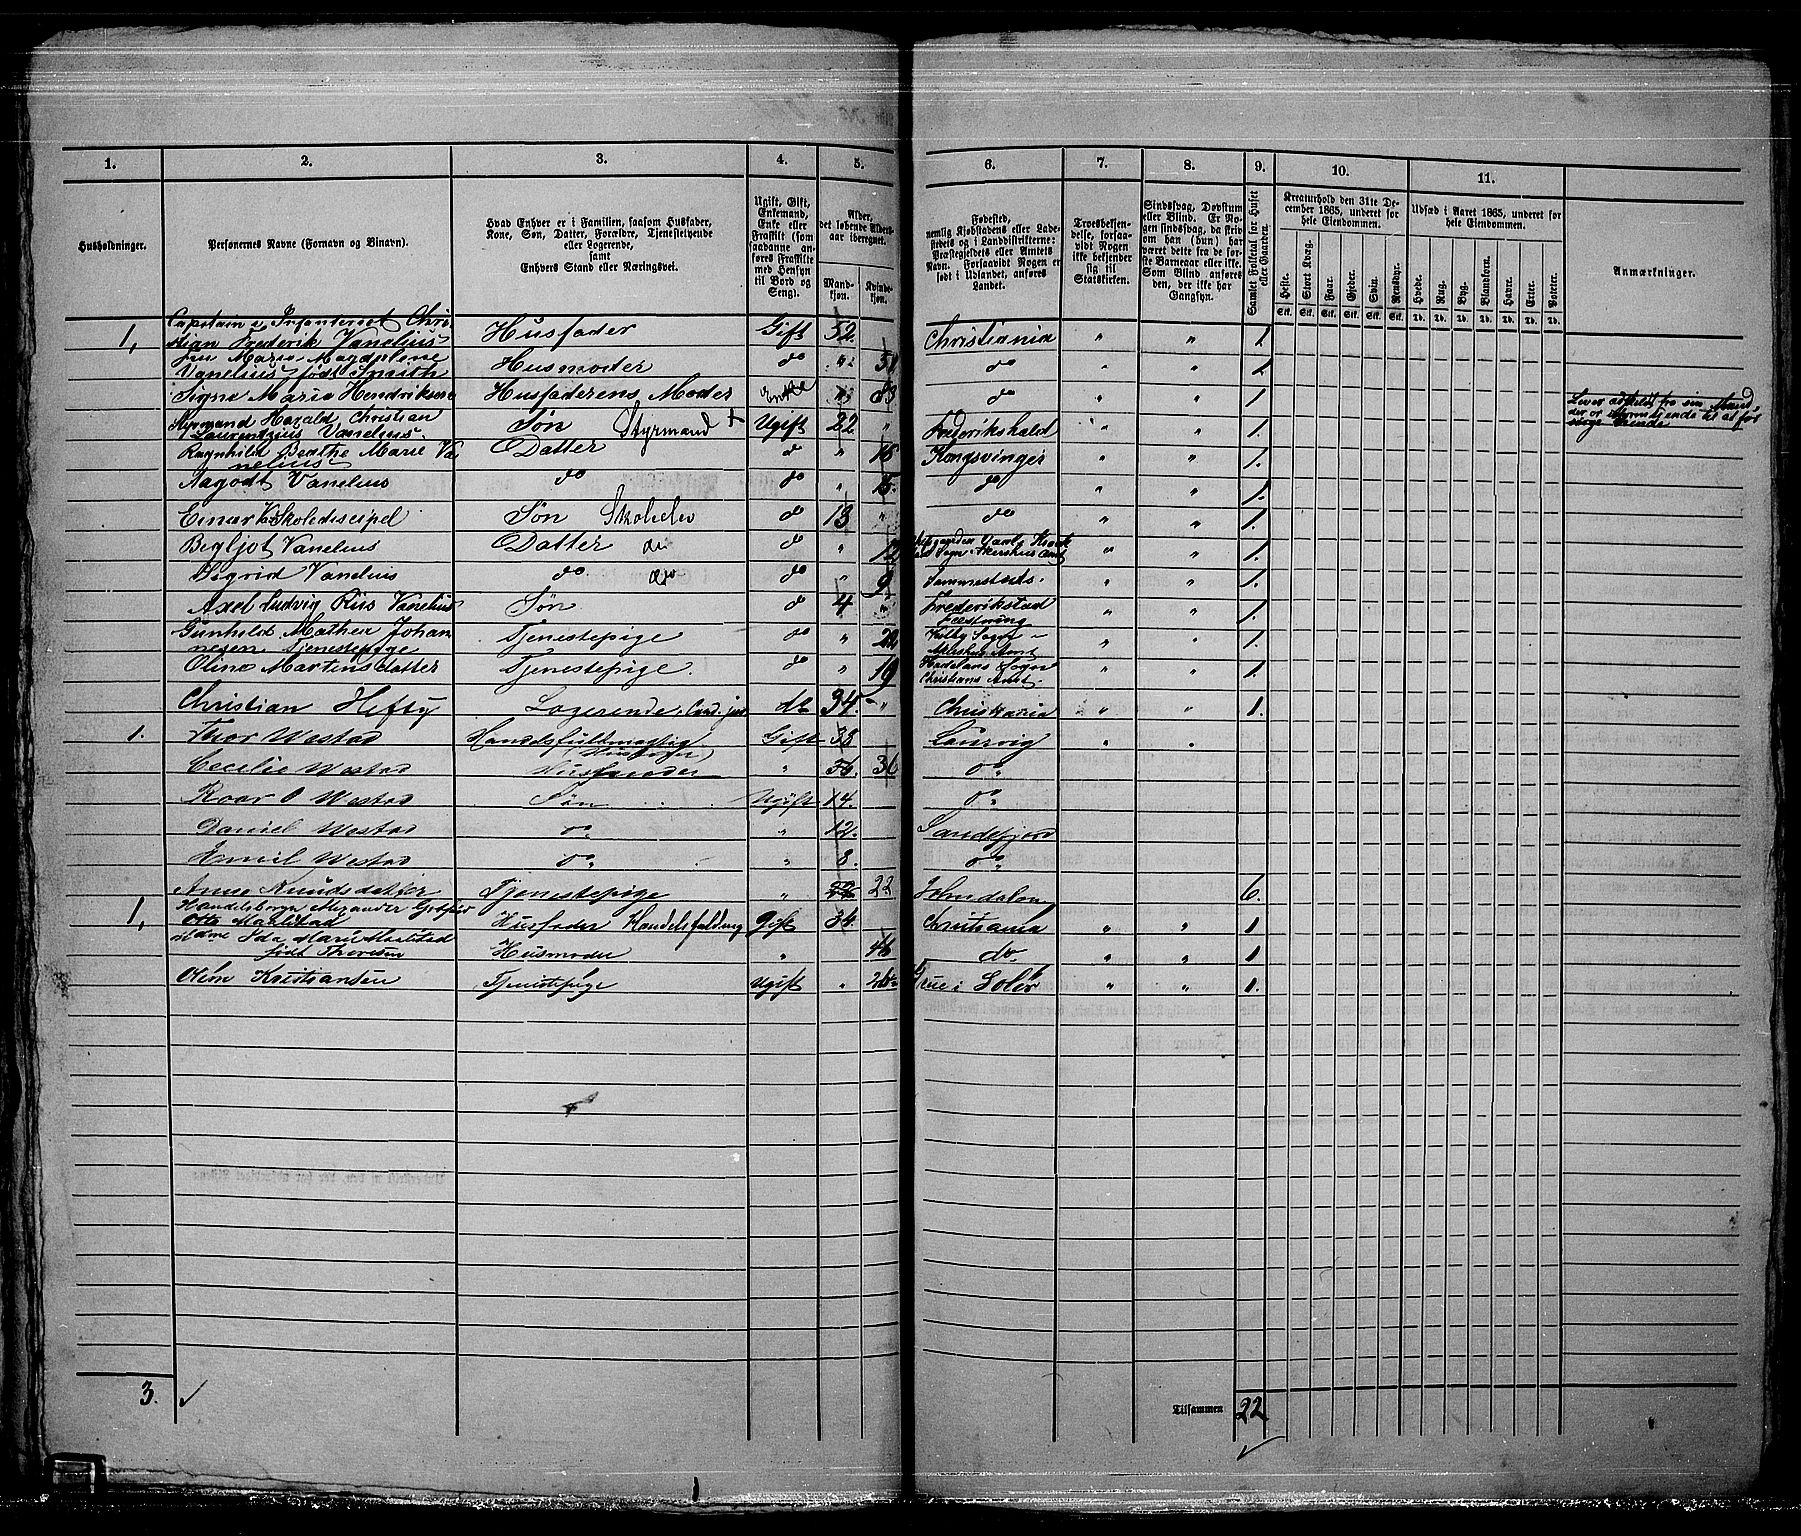 1. 2. 3. 4. 5. 6. 7. 8. 9. 10. 11.
Husholdninger.
Personernes Navne (Fornavn og Binavn).
Hvad Enhver er i Familien, saasom Husfader,
Kone, Søn, Datter, Forældre, Tjenestetyende
eller Logerende,
samt
Enhvers Stand eller Næringsvei.
Ugift, Gift,
Enkemand,
Enke eller
Fraskilt (som
saadanne an-
føres Fraskilte
med Hensyn
til Bord og
Seng).
Alder,
det løbende Alders-
aar iberegnet.
Mand-
kjøn.
Kvinde-
kjøn.
Fødested,
nemlig Kjøbstadens eller Lade-
stedets og i Landdistrikterne:
Præstegjeldets eller Amtets
Navn. Forsaavidt Nogen er
født i Udlandet, anføres
Landet.
Troesbekjen-
delse, forsaa-
vidt Nogen
ikke bekjender
sig til
Statskirken.
Sindssvag, Døvstum
eller Blind. Er No-
gen sindssvag, da skriv
om han (hun) har
været dette fra de før-
ste Barneaar eller ikke.
Som Blind anføres
den, der ikke har
Gangsyn.
Samlet Folketal for Huset
eller Gaarden.
Kreaturhold den 31te De-
cember 1865, underet for
hele Eiendommen.
Heste. Stort Kvæg. Faar. Gjeder. Svin. Rensdyr.
Stk. Stk. Stk. Stk. Stk. Stk.
Udsæd i Aaret 1865, underet for
hele Eiendommen.
Hvede. Rug. Byg. Blandkorn. Havre. Erter. Poteter.
Td. Td. Td. Td. Td. Td. Td.
Anmærkninger.
Captain i Infanteriet Chri-
1, stian Frederik Vanelius Husfader Gift 52. " Christiania " " 1.
Fru Maria Magdalene
Vanelius født Smith Husmoder do " 51 do " " 1
Signe Maria Hendriksen Husfaderens Moder Enke " 83 do " " 1. Lever adskilt fra sin Mand
Styrmand Harald Christian
Laurentzius Vanelius. Søn Styrmand + Ugift 22. " Frederikshald " " 1.
Ragnhild Berthe Marie Va-
nelius Datter do " 18 Kongsvinger " " 1.
Aagodt Vanelius do do " 15. do " " 1.
Einar V. Skolediscipel Søn Skoleelev do 13 " do " " 1.
Bergljot Vanelius Datter do do " 12 " " 1.
Sigrid Vanelius do do do " 9 Sammesteds. " " 1.
Axel Ludvig Riis Vanelius Søn do 4 " Frederikstad
Fæstning " " 1.
Gunhild Mathea Johan-
nesen Tjenestepige Tjenestepige do " 22 Sogn
Akershus Amt " " 1.
Oline Martinsdatter Tjenestepige do " 19 Hadelans Sogn
Christians Amt. " " 1.
Christian Hefty Logerende, Cand. jur. do 34. " Christiania " " 1.
1. Thor Westad Handelsfuldmægtig
Gift 38 Laurvig " "
Cecilie Westad Husmoder " 36 36 do
Roar O Westad Søn Ugift 14. do
Daniel Westad do " 12. Sandefjord
Emil Westad do " 8. do
Anne Knudsdatter Tjenestepige " 22 22 6.
Handelsborger Alexander
1, Otto Husfader Handelsfuldmg Gift 34. Christiania " " 1.
Madme Ida Marie
født Thoresen Husmoder " 46 do. " " 1.
Oline Kristiansen Tjenestepige Ugift " 24 Grue i Solør " " 1.
3. ✓
Tilsammen 22
✓